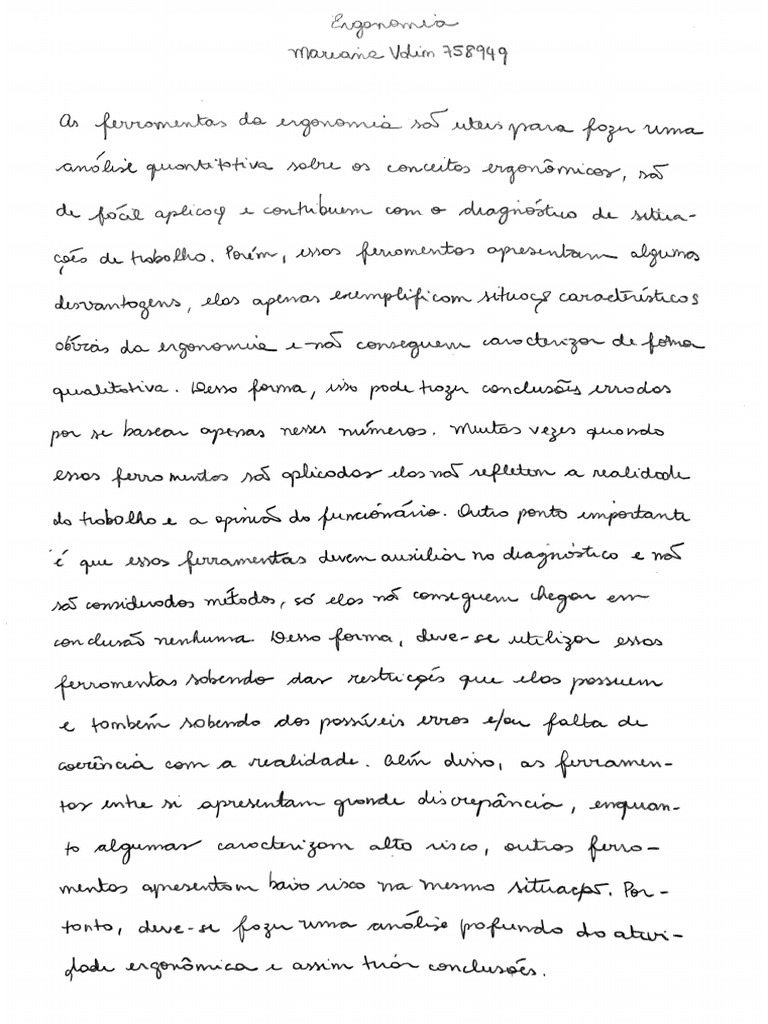 Ergonomia
Mariana Volim 758949
As ferramentas da ergonomia são uteis para fazer uma
análise quantitativa sobre os conceitos ergonômicos, são
de fácil aplicaçõ e contribuem com o diagnóstico de situa-
ções de trabalho. Porém, essas ferramentas apresentam algumas
desvantagens, elas apenas exemplificam situaçõ características
obvias da ergonomia e não conseguem caracterizar de forma
qualitativa. Dessa forma, isso pode trazer conclusões erradas
por se basear apenas nesses números. Muitas vezes quando
essas ferramentas são aplicadas elas não refletem a realidade
do trabalho e a opinião do funcionário. Outro ponto importante
é que essas ferramentas devem auxiliar no diagnóstico e não
são considerados métodos, só elas não conseguem chegar em
conclusão nenhuma. Dessa forma, deve-se utilizar essas
ferramentas sabendo das restrições que elas possuem
e também sabendo dos possíveis erros e/ou falta de
coerência com a realidade. Além disso, as ferramen-
tas entre si apresentam grande discrepância, enquan-
to algumas caracterizam alto risco, outras ferra-
mentas apresentam baixo risco na mesma situação. Por-
tanto, deve-se fazer uma análise profunda da ativi-
dade ergonômica e assim tirar conclusões.